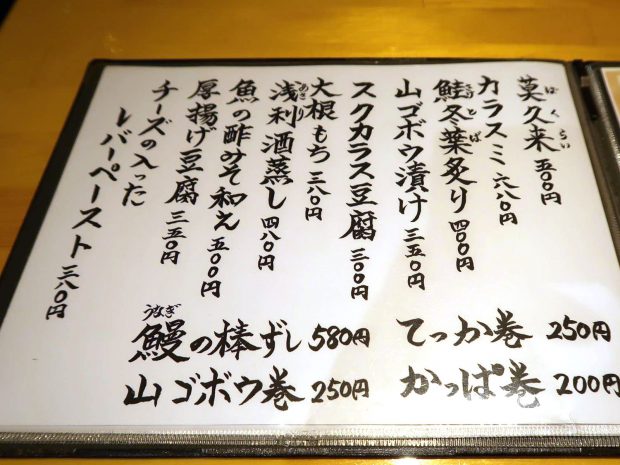 莫久来 五〇〇円
ばくらい
カラスミ 六八〇円
鮭冬葉炙り 四〇〇円
さとば
山ゴボウ漬け 三五〇円
スクガラス豆腐 三〇〇円
大根もち 三八〇円
浅利酒蒸し 四八〇円
あさり
魚の酢みそ和え 五〇〇円
厚揚げ豆腐 三五〇円
チーズの入った
レバーペースト 三八〇円
てっか巻 250円
かっぱ巻 200円
うなぎ
鰻の棒ずし 580円
山ゴボウ巻 250円